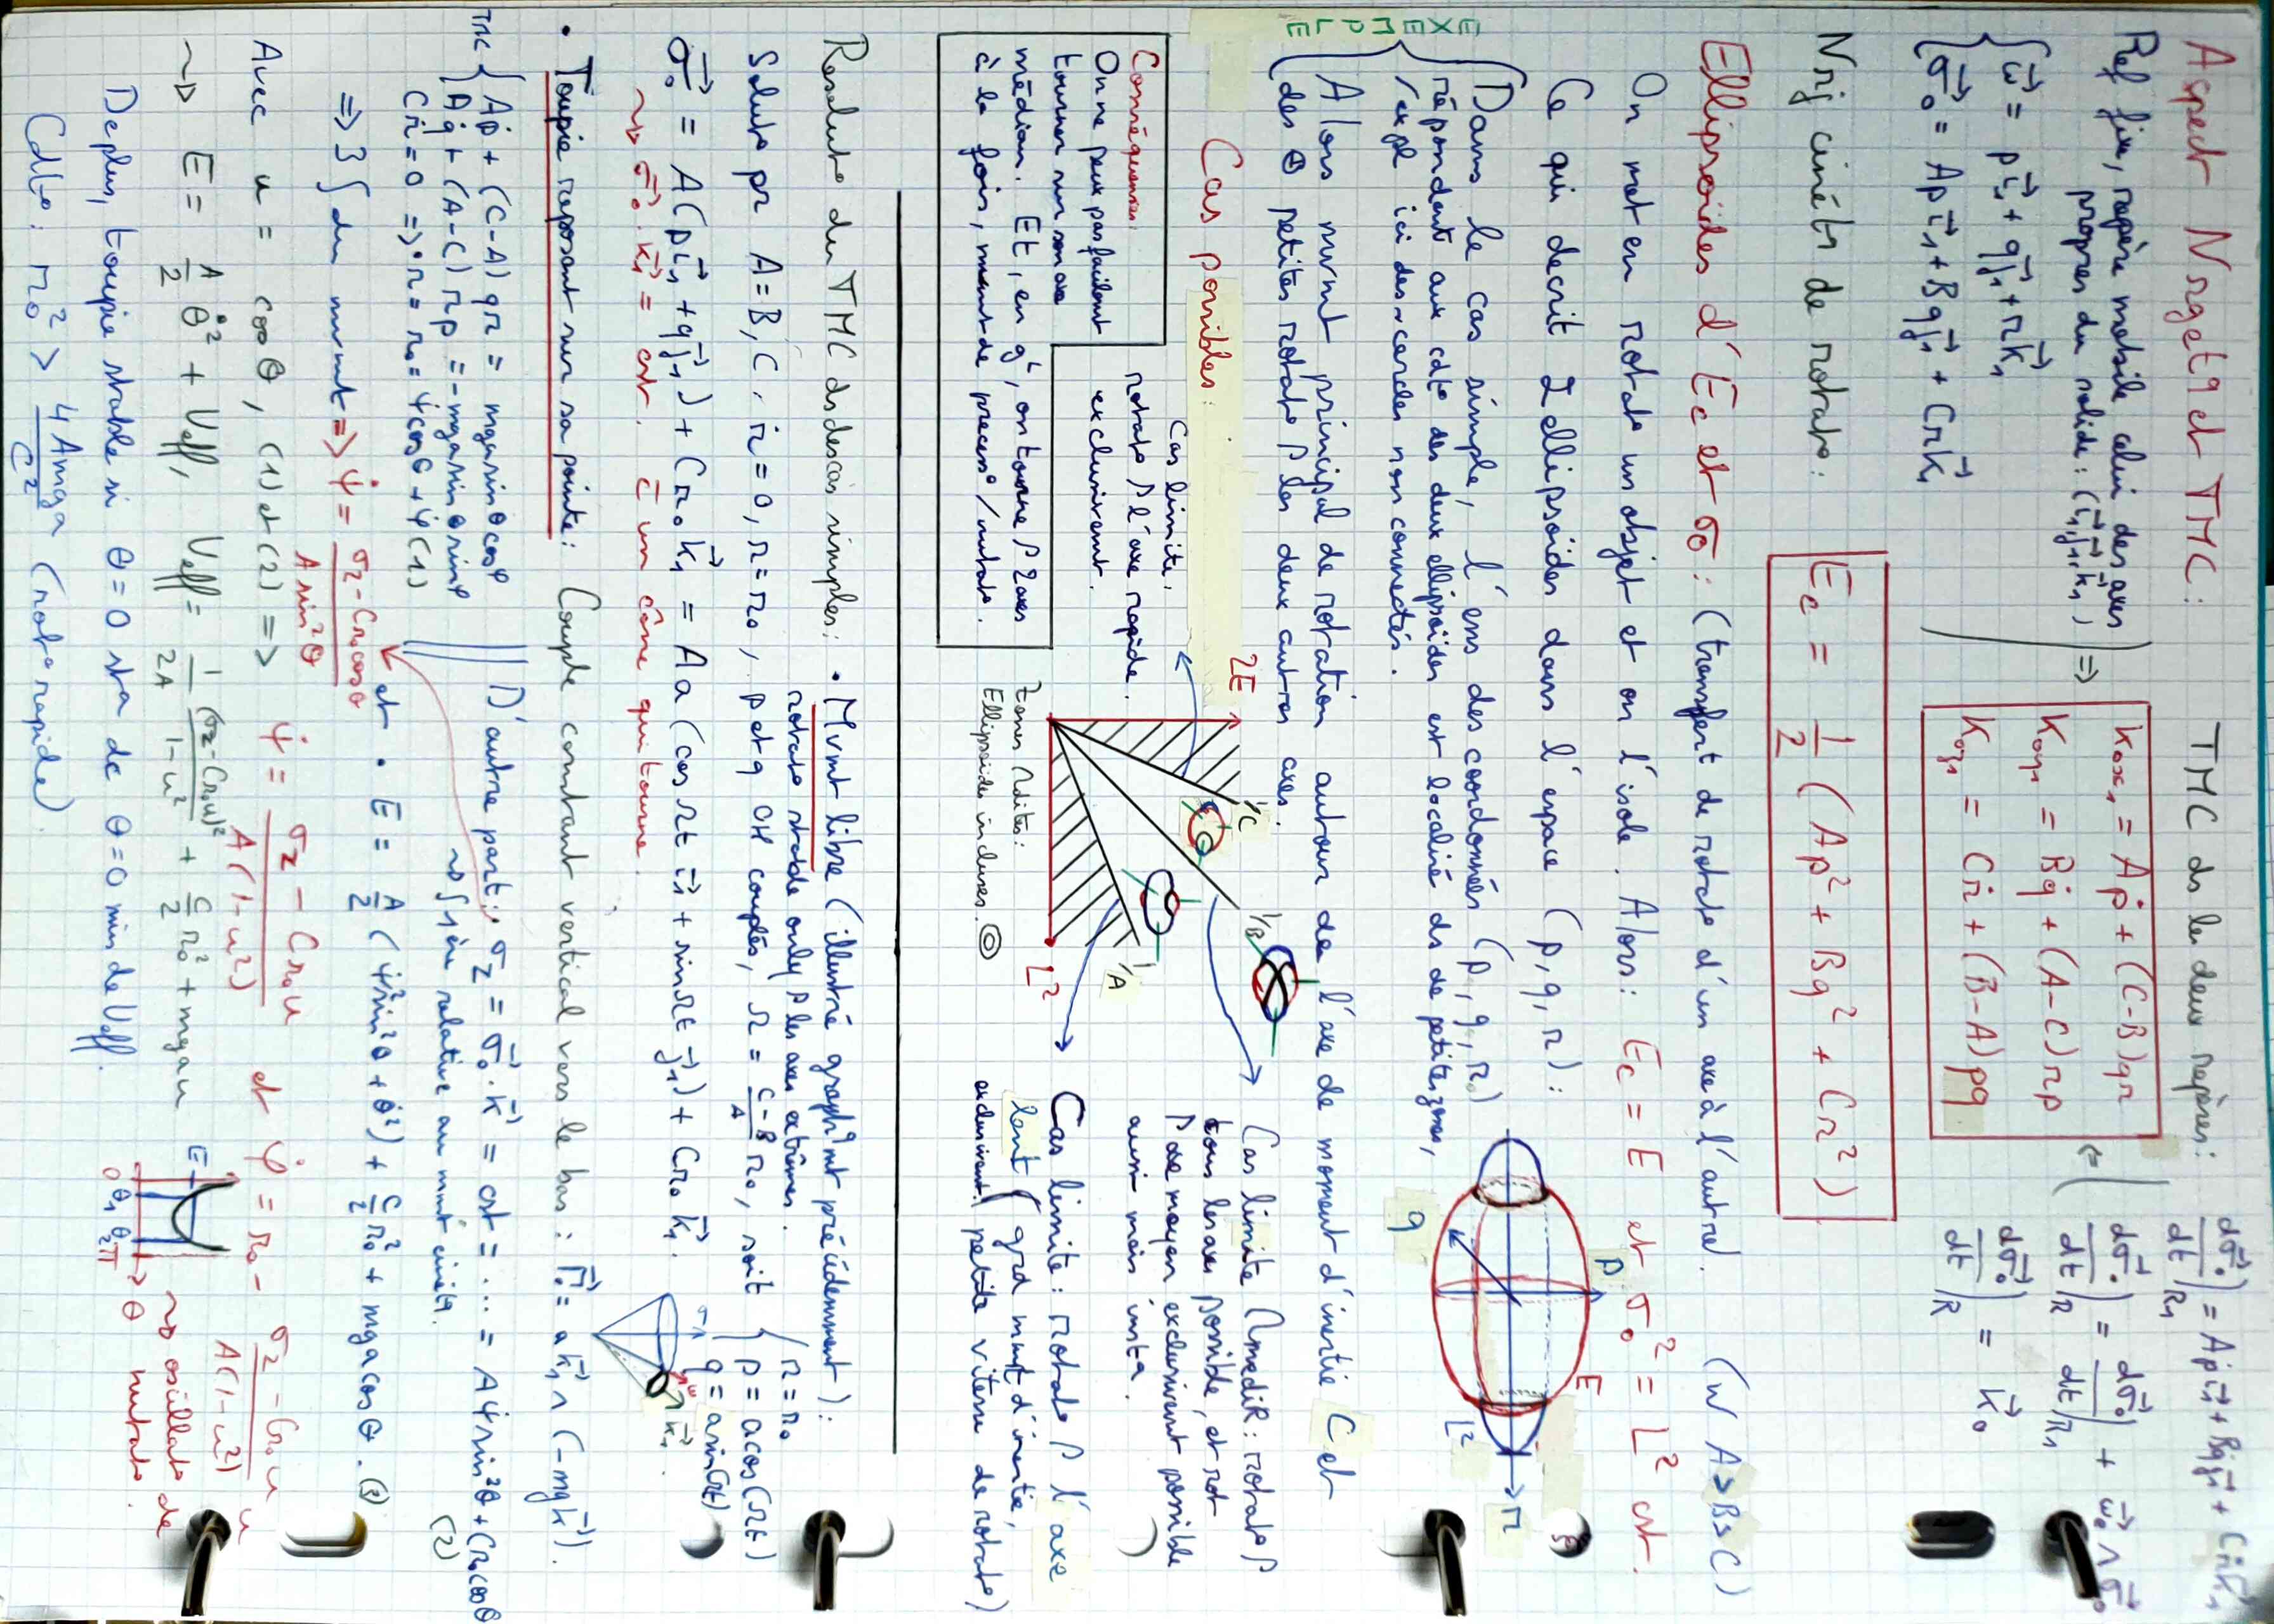 Aspect Nrgetq et TMC :
Ref fixe, repère mobile celui des axes propres du solide : (i₁, j₁, k₁)
TMC ds les deux repères :
dσ₀/dt)/R₁ = Aṗ i₁ + Bq̇ j₁ + Cṙ k₁
{ ω = p i₁ + q j₁ + r k₁
{ σ₀ = Ap i₁ + Bq j₁ + Cr k₁
⇒
Kox₁ = Aṗ + (C-B)qr
Koy₁ = Bq̇ + (A-C)rp
Koz₁ = Cṙ + (B-A)pq
⇐
dσ₀/dt)/R = dσ₀/dt)/R₁ + ωe ∧ σ₀
dσ₀/dt)/R = K₀
Nrj cinétq de rotat° :
Ec = 1/2 (Ap² + Bq² + Cr²)
Ellipsoïdes d'Ec et σ₀ : (transfert de rotat° d'un axe à l'autre). (W A>B>C)
On met en rotat° un objet et on l'isole. Alors : Ec = E et σ₀² = L² cst.
Ce qui décrit 2 ellipsoïdes dans l'espace (p, q, r) :
EXEMPLE
Dans le cas simple, l'ens des coordonnées (p, q, r)
répondants aux cdt° des deux ellipsoïdes est localisé ds de petites zones,
ici des ~ cercles non connectés.
Alors mvmt principal de rotation autour de l'axe de moment d'inertie C et
des ⊕ petites rotat° / les deux autres axes.
p
E
q
L²
r
Cas possibles :
2E
1/C
1/B
1/A
L²
Cas limite,
rotat° / l'axe rapide
exclusivement.
Zones Ndites :
Ellipsoïdes incluses.
Cas limite rmediR : rotat° /
tous les axes possible, et rot
/ axe moyen exclusivement possible
aussi mais insta.
Cas limite : rotat° / l'axe
lent (grd mmt d'inertie,
exclusivement) petite vitesse de rotat°)
Conséquences :
On ne peux pas facilement
tourner sur son axe
médian. Et, en gl, on tourne / 2 axes
à la fois, mvmt de précess° / nutat°.
Résolut° du TMC ds des cas simples :
• Mvmt libre (illustré graphiqmt précédemment) :
rotat° stable only / les axes extrêmes.
Solut° pr A=B, Cṙ = 0, r=r₀, p et q OH couplés, Ω = (C-B)/A r₀, soit
{ r = r₀
{ p = a cos(Ωt)
{ q = a sin(Ωt)
σ₀ = A(p i₁ + q j₁) + Cr₀ k₁ = Aa (cos Ωt i₁ + sin Ωt j₁) + Cr₀ k₁.
⇝ σ₀ · k₁ = cst. c un cône qui tourne.
k₁
• Toupie reposant sur sa pointe : Couple constant vertical vers le bas : Γ₀ = a k₁ ∧ (-mg k).
TMC { Aṗ + (C-A)qr = mga sin θ cos φ
{ Aq̇ + (A-C)rp = -mga sin θ sin φ
Cṙ = 0 ⇒ r = r₀ = ψ̇ cos θ + φ̇ (1)
D'autre part : σz = σ₀ · k = cst = ... = Aψ̇ sin²θ + Cr₀ cos θ (2)
⇝ ∫ 1ère relative au mmt cinétq.
⇒ 3 ∫ du mvmt ⇒ ψ̇ = (σz - Cr₀ cos θ)/(A sin²θ) et • E = A/2 (ψ̇² sin²θ + θ̇²) + C/2 r₀² + mga cos θ. (3)
Avec u = cos θ, (1) et (2) ⇒ ψ̇ = (σz - Cr₀u)/(A(1-u²)) et φ̇ = r₀ - (σz - Cr₀u)/(A(1-u²)) u
⇝ E = A/2 θ̇² + Ueff, Ueff = 1/2A (σz - Cr₀u)²/(1-u²) + C/2 r₀² + mgau
E
0 θ₁ θ₂ π θ
⇝ oscillat° de nutat°.
De plus, toupie stable si θ=0 sta de θ=0 min de Ueff.
Cdt° : r₀² > 4Amga/C² (rot° rapide).